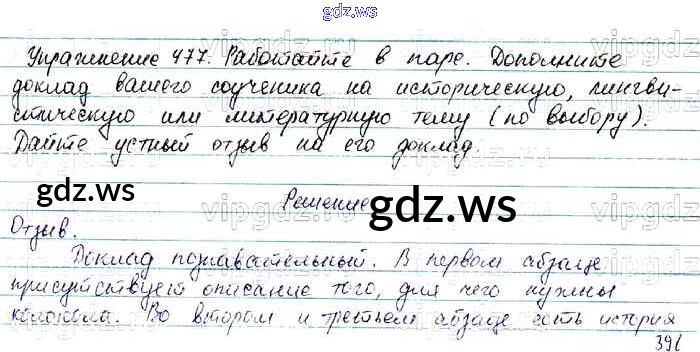 gdz.ws
Упражнение 477. Работайте в паре. Дополните
доклад вашего соученика на историческую, лингви-
стическую или литературную тему (по выбору).
Дайте устный отзыв на его доклад.
gdz.ws
Решение
gdz.ws
Отзыв.
Доклад познавательный. В первом абзаце
присутствует описание того, для чего нужны
колокола. Во втором и третьем абзаце есть история
391